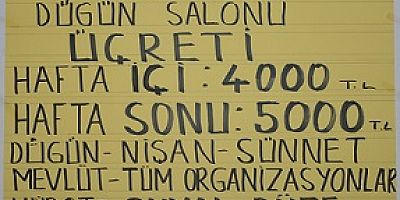 DÜĞÜN SALONU
ÜÇRETİ
HAFTA İÇİ: 4000 T.L
HAFTA SONU: 5000 T.L
DÜĞÜN-NİŞAN-SÜNNET
MEVLÜT-TÜM ORGANİZASYONLAR